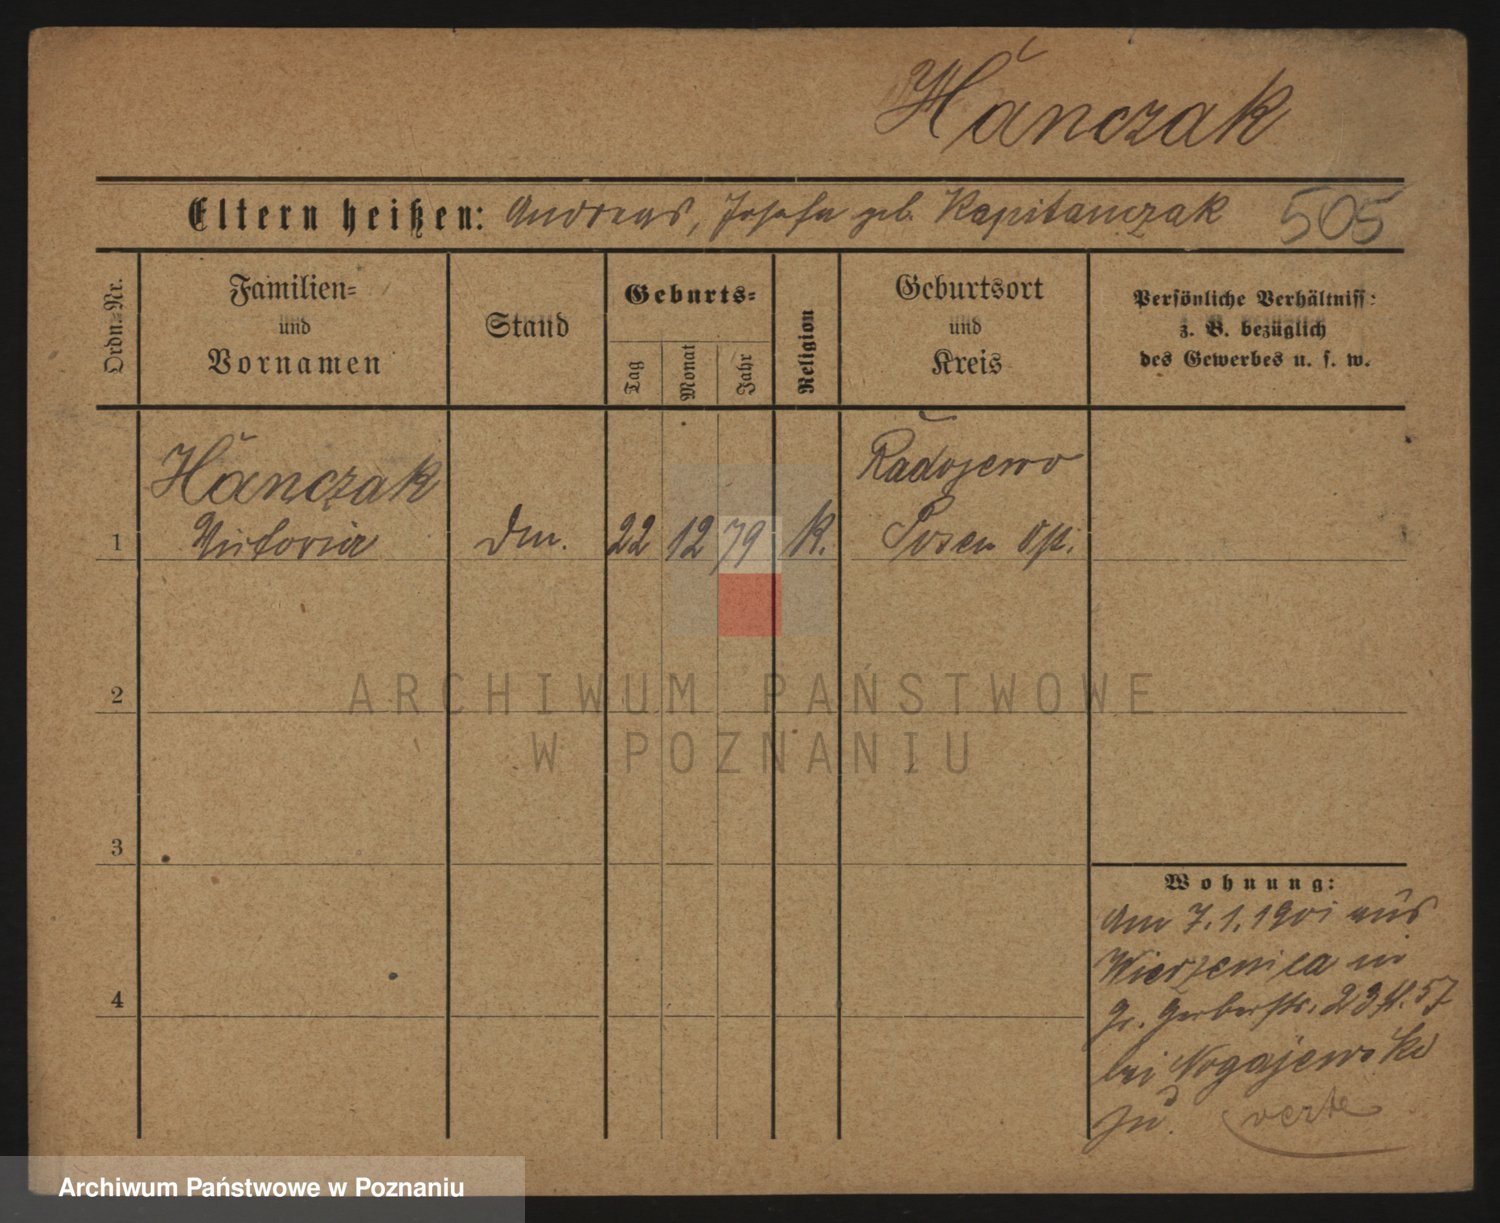 Hańczak
Eltern heißen: Andreas, Josefa geb. Kapitanczak 505
Ordn.-Nr.
Familien-
und
Vornamen
Stand
Geburts-
Tag
Monat
Jahr
Religion
Geburtsort
und
Kreis
Persönliche Verhältniss:
z. B. bezüglich
des Gewerbes u. s. w.
Hańczak
Victoria
1
Dm.
22
12
79
K.
Radojewo
Posen Op.
2
ARCHIWUM PAŃSTWOWE
W POZNANIU
3
4
Wohnung:
Am 7.1.1901 aus
Wierzenica in
Gr. Gerberstr. 23 57
bei Nogajewski
zu.
verte
Archiwum Państwowe w Poznaniu